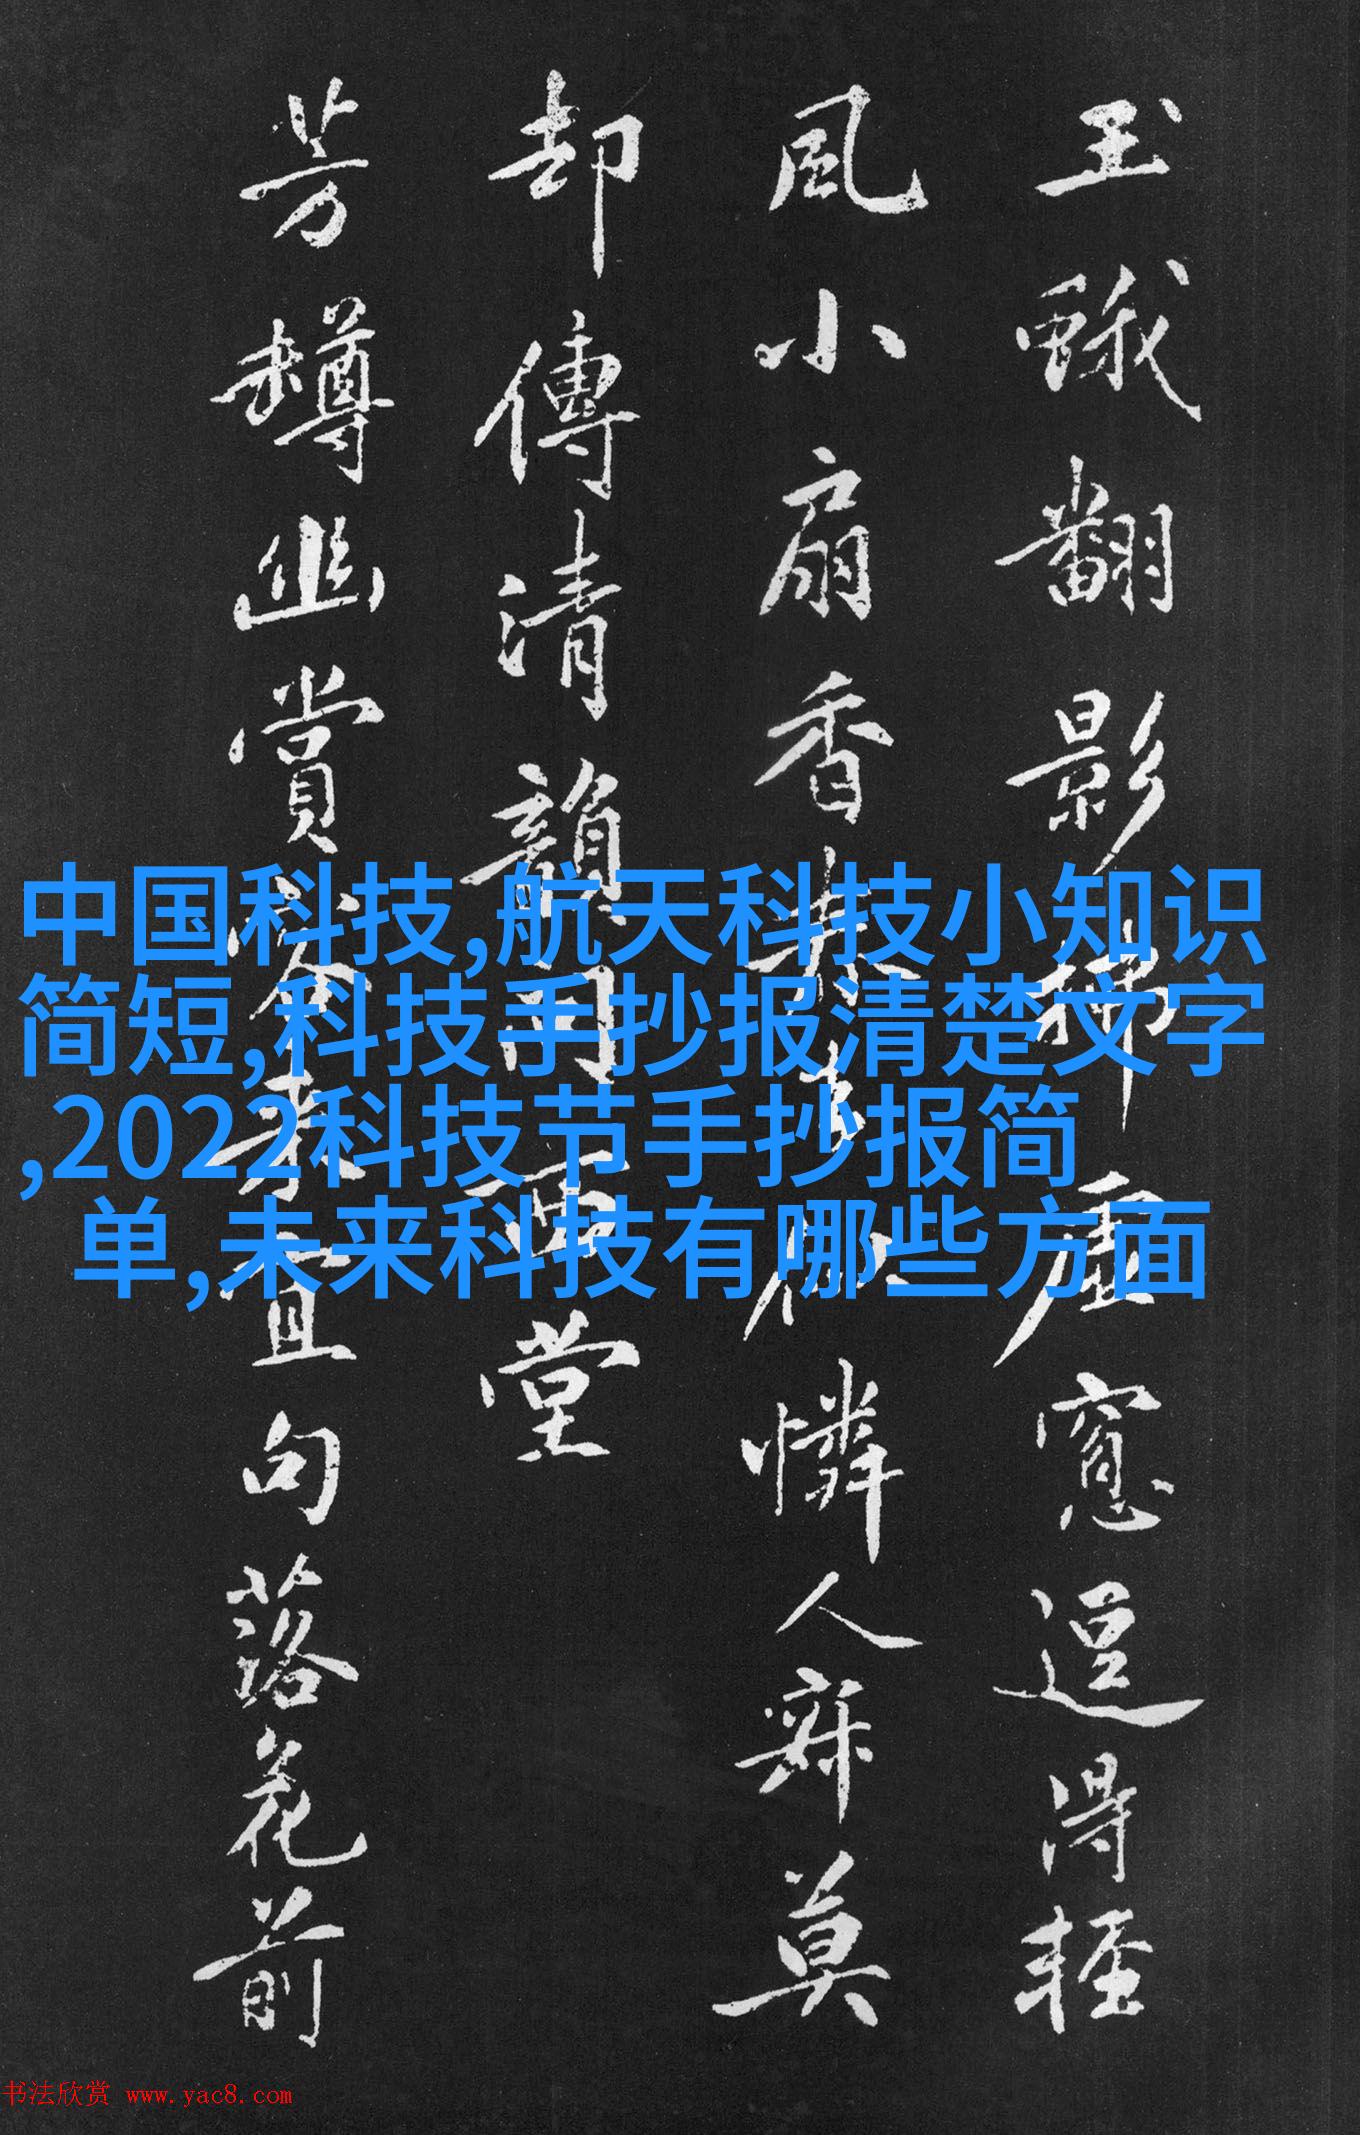 玉蛾翻影掃虛窓逗得輕
風小扇香憐人寐莫
却傳清韻西堂
芳罇幽賞來宜句落花前
中国科技,航天科技小知识
简短,科技手抄报清楚文字
,2022科技节手抄报简
单,未来科技有哪些方面
书法欣赏 www.yac8.com